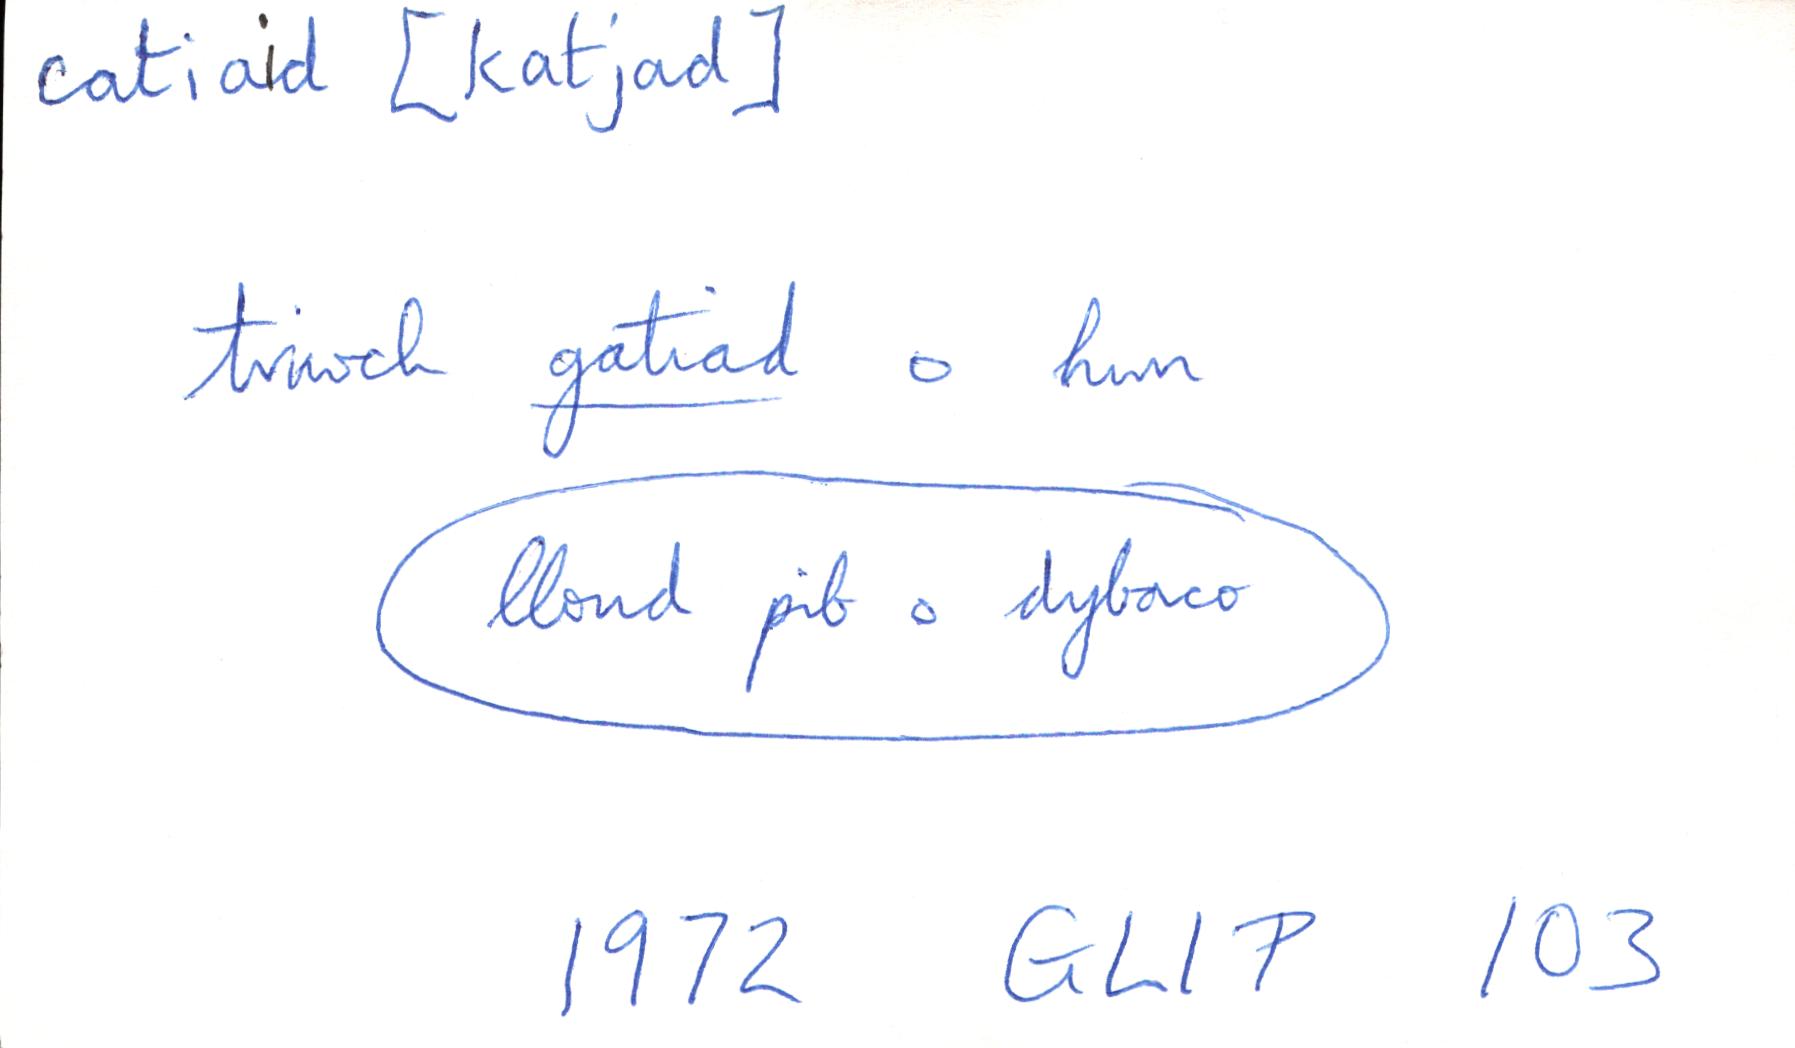 catiaid [katjad]
triwch gatiad o hwn
llond pib o dybaco
1972 GLIP 103